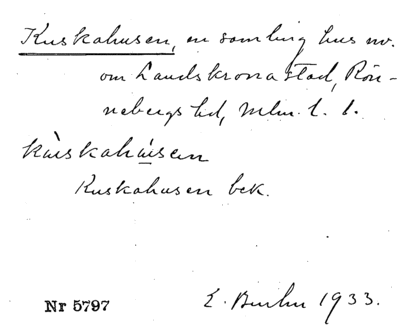 Kuskahusen, en samling hus nv.
om Landskrona stad, Rön-
nebergs hd, Mlm. l. 1.
kùskahúsen
Kuskahusen bek.
Nr 5797
E. 1933.